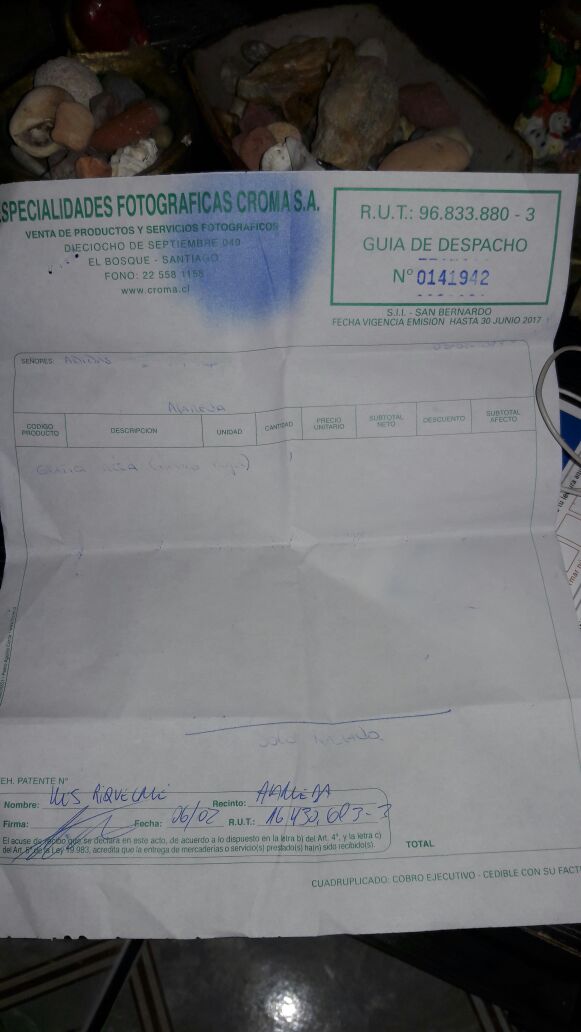 ESPECIALIDADES FOTOGRAFICAS CROMA S.A.
VENTA DE PRODUCTOS Y SERVICIOS FOTOGRAFICOS
DIECIOCHO DE SEPTIEMBRE 049
EL BOSQUE - SANTIAGO
FONO: 22 558 1158
www.croma.cl
R.U.T.: 96.833.880 - 3
GUIA DE DESPACHO
N° 0141942
S.I.I. - SAN BERNARDO
FECHA VIGENCIA EMISION HASTA 30 JUNIO 2017
SEÑORES: ADIDAS
ALAMEDA
CODIGO PRODUCTO DESCRIPCION UNIDAD CANTIDAD PRECIO UNITARIO SUBTOTAL NETO DESCUENTO SUBTOTAL AFECTO
SOLO TRASLADO
EH. PATENTE N°
Nombre: LUIS RIQUELME Recinto: ALAMEDA
Firma: Fecha: 06/02 R.U.T.: 16.430.683-3
El acuse de recibo que se declara en este acto, de acuerdo a lo dispuesto en la letra b) del Art. 4°, y la letra c)
del Art. 5° de la Ley 19.983, acredita que la entrega de mercaderías o servicio(s) prestado(s) ha(n) sido recibido(s).
TOTAL
CUADRUPLICADO: COBRO EJECUTIVO - CEDIBLE CON SU FACT